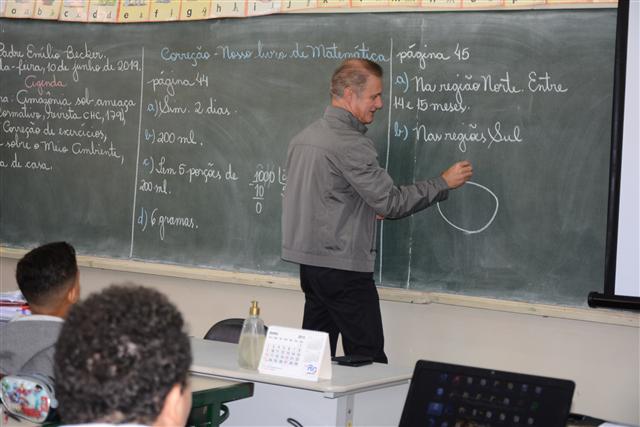 Padre Emílio Becker,
da-feira, 10 de junho de 2019.
Agenda
Amazônia sob ameaça
revista CHC, 179)
Correção de exercícios,
sobre o Meio Ambiente,
de casa.
Correção - Nosso livro de Matemática
página 44
a) Sim. 2 dias.
b) 200 ml.
c) Sem 5 porções de
200 ml.
1000
10
0
d) 6 gramas.
página 45
a) Na região Norte. Entre
14 e 15 meses.
b) Nas regiões Sul